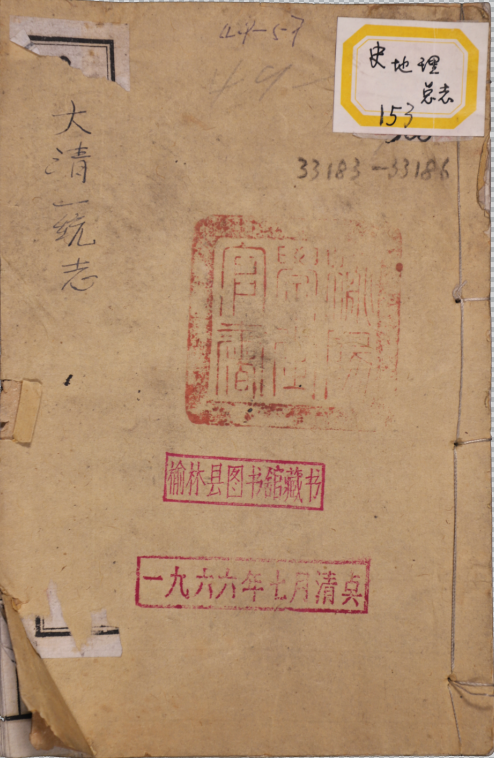 44-57
史地理
总志
153
33183-33186
大清一统志
榆林县图书馆藏书
一九六六年七月清点